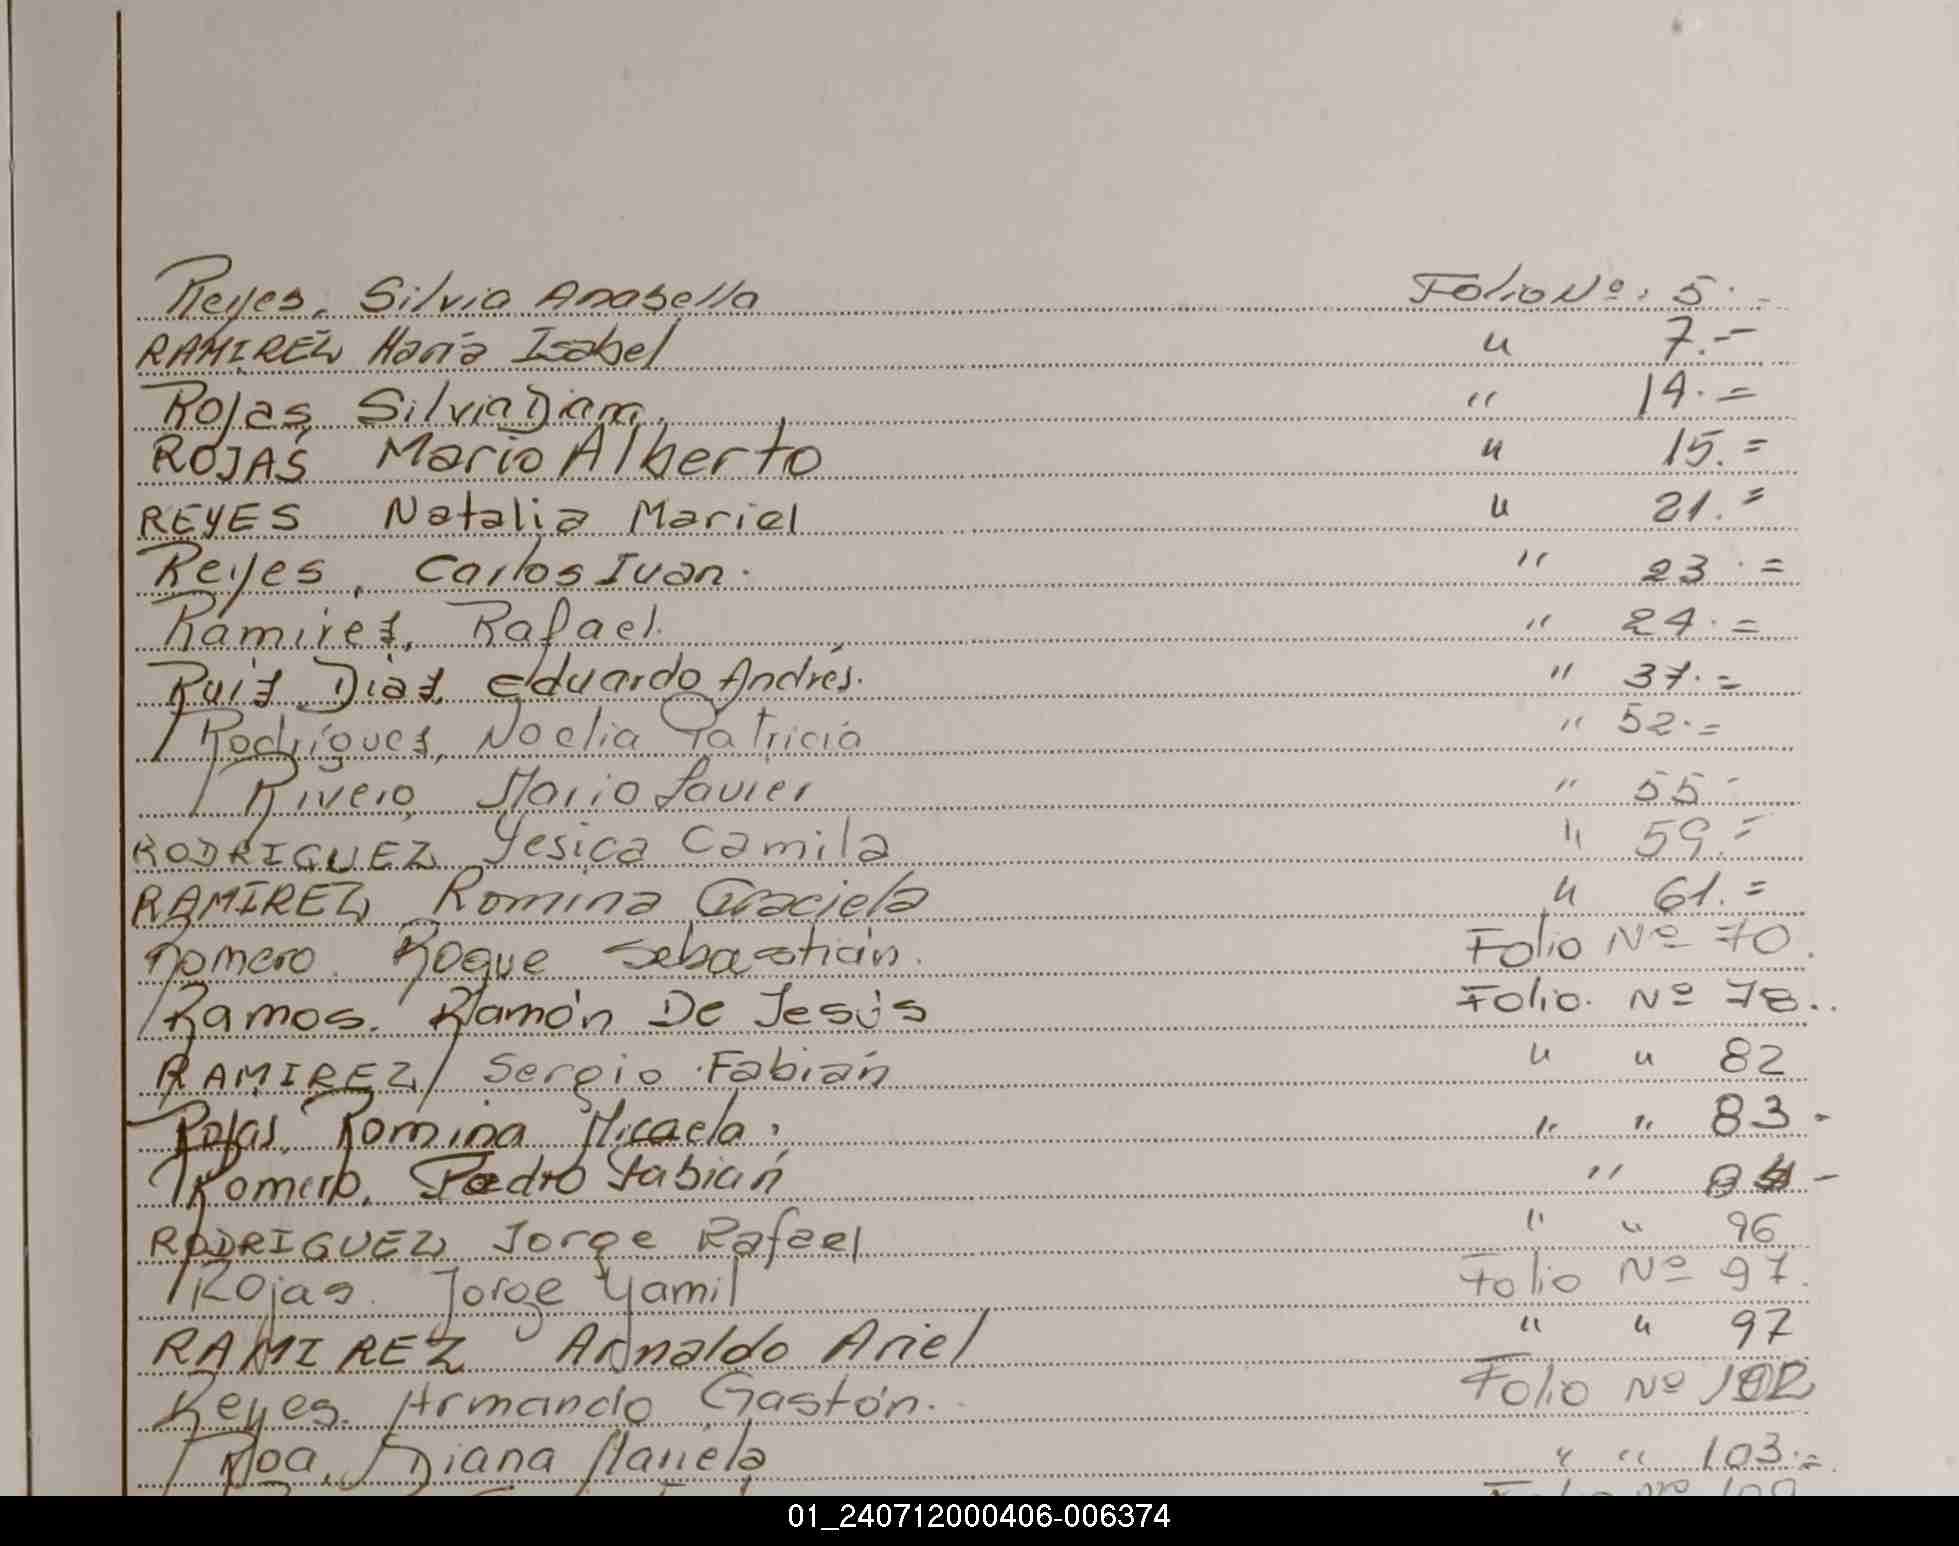 Reyes, Silvia Anabella Folio Nº: 5.-
RAMIREZ María Isabel " 7.-
Rojas Silvia Diana. " 14.=
ROJAS Mario Alberto " 15.=
REYES Natalia Mariel " 21.=
Reyes, Carlos Ivan. " 23.=
Ramirez, Rafael. " 24.=
Ruiz Diaz, Eduardo Andrés. " 37.=
Rodríguez, Noelia Patricia " 52.=
Rivero, Mario Javier " 55.-
RODRIGUEZ Yesica Camila " 59.=
RAMIREZ Romina Graciela " 61.=
Romero. Roque Sebastián. Folio Nº 70.
Ramos. Ramón De Jesús Folio. Nº 78..
RAMIREZ Sergio Fabián " " 82
Rojas, Romina Micaela. " " 83-
Romero, Pedro Fabián " 84-
RODRIGUEZ Jorge Rafael " " 96
Rojas. Jorge Yamil Folio Nº 97.
RAMIREZ Arnaldo Ariel " " 97
Reyes. Armando Gastón. Folio Nº 102
Roa, Diana Mariela " " 103.=
01_240712000406-006374